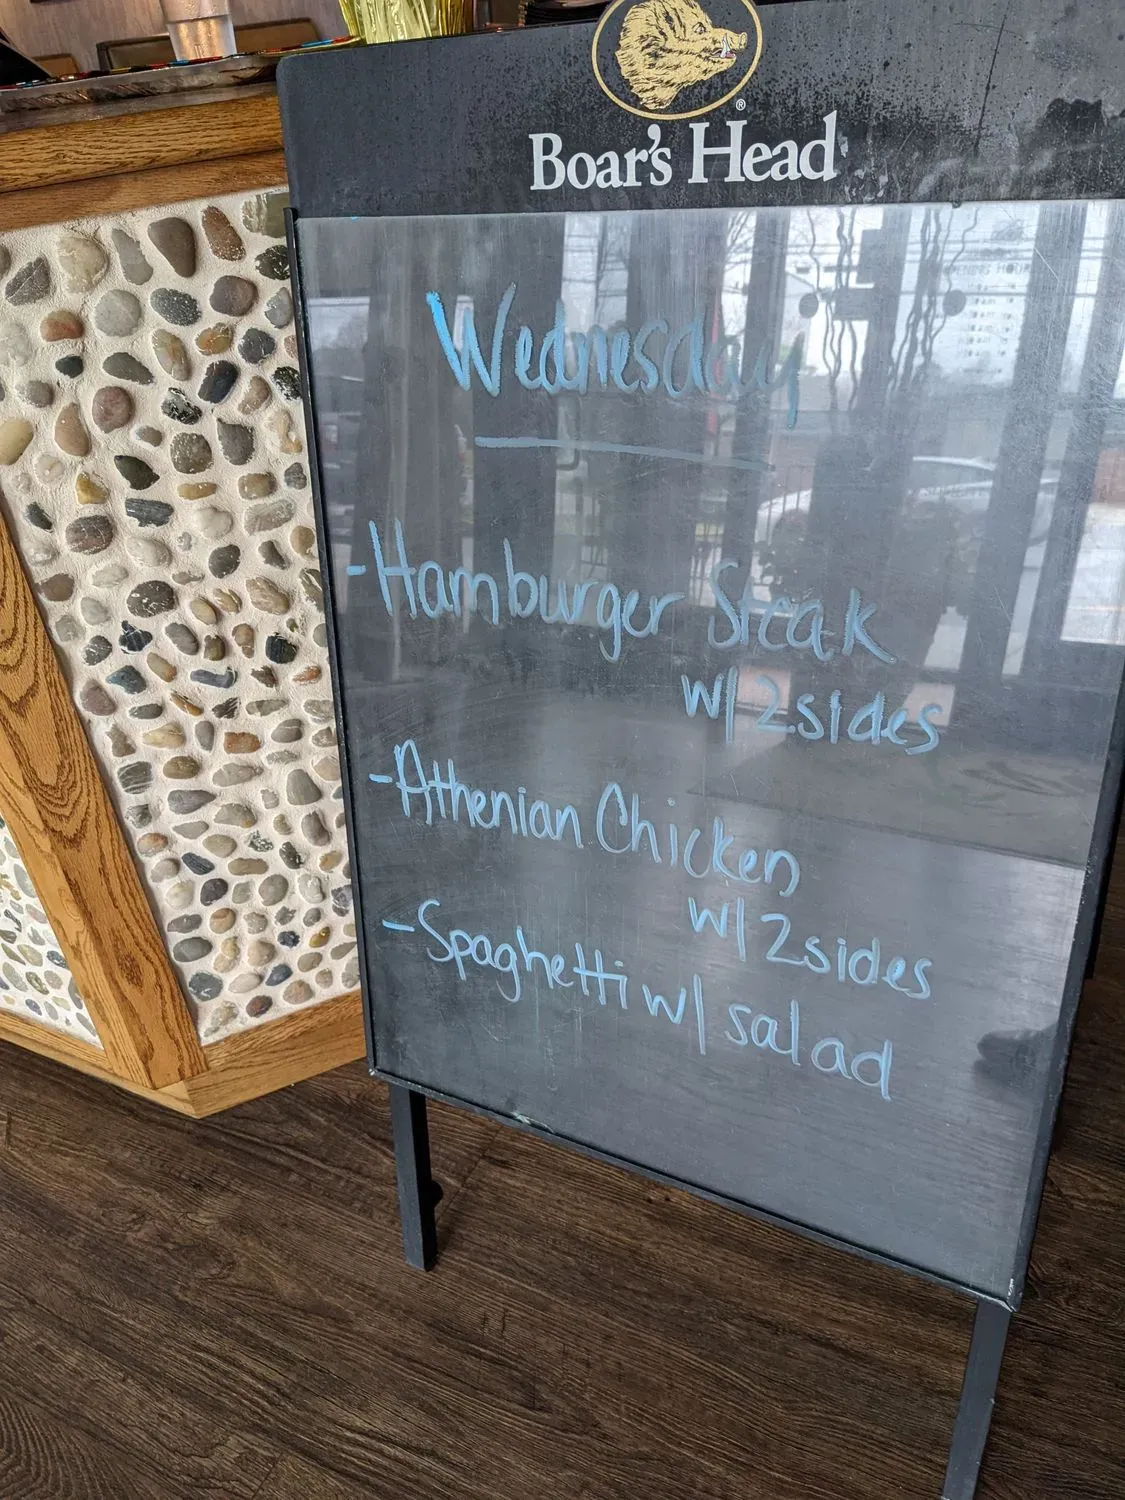 Boar's Head
Wednesday
- Hamburger Steak
w/ 2 sides
- Athenian Chicken
w/ 2 sides
- Spaghetti w/ salad